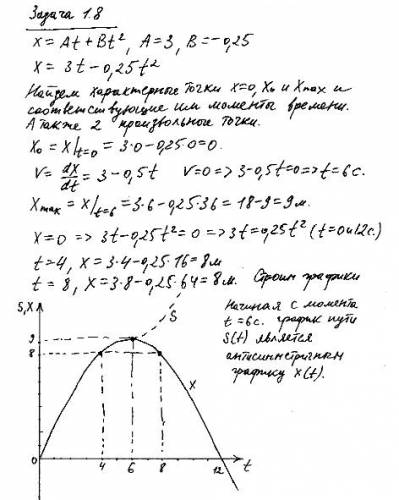 Задача 1.8
x = At + Bt², A = 3, B = -0,25
x = 3t - 0,25t²
Найдем характерные точки x=0, x₀ и xmax и
соответствующие им моменты времени.
А также 2 произвольные точки.
x₀ = x|t=0 = 3·0 - 0,25·0 = 0.
v = dx/dt = 3 - 0,5t v=0 => 3-0,5t=0 => t=6с.
xмак = x|t=6 = 3·6 - 0,25·36 = 18-9 = 9м.
x=0 => 3t - 0,25t² = 0 => 3t = 0,25t² (t=0 и 12с.)
t=4, x = 3·4 - 0,25·16 = 8м
t = 8, x = 3·8 - 0,25·64 = 8м. Строим графики
S,x
S
9
8
x
0
4
6
8
12
t
Начиная с момента
t = 6с. график пути
S(t) является
антисимметричным
графику x(t).